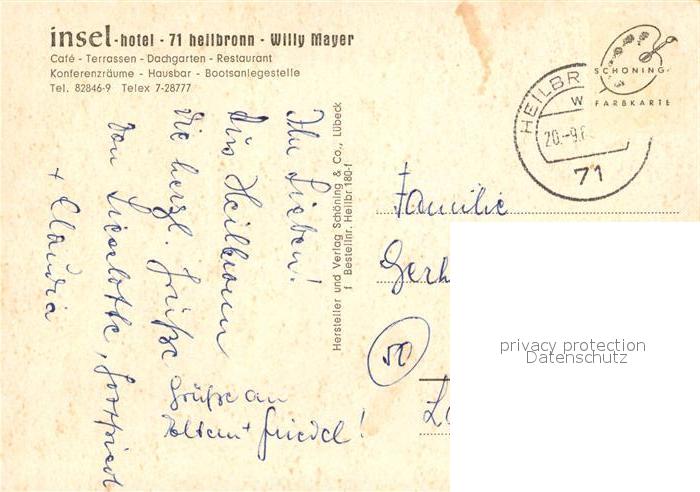 insel-hotel · 71 heilbronn · Willy Mayer
Café - Terrassen - Dachgarten - Restaurant
Konferenzräume - Hausbar - Bootsanlegestelle
Tel. 82846-9 Telex 7-28777
Ihr Lieben!
Aus Heilbronn
die herzl. Grüße
von Lieselotte, Gottfried
+ Claudia
Grüße an
Friedel!
Hersteller und Verlag Schöning & Co., Lübeck
Bestellnr. Heilbr 180-f
HEILBR
20.-9.6
71
SCHÖNING
FARBKARTE
Familie
Gerh
50
privacy protection
Datenschutz